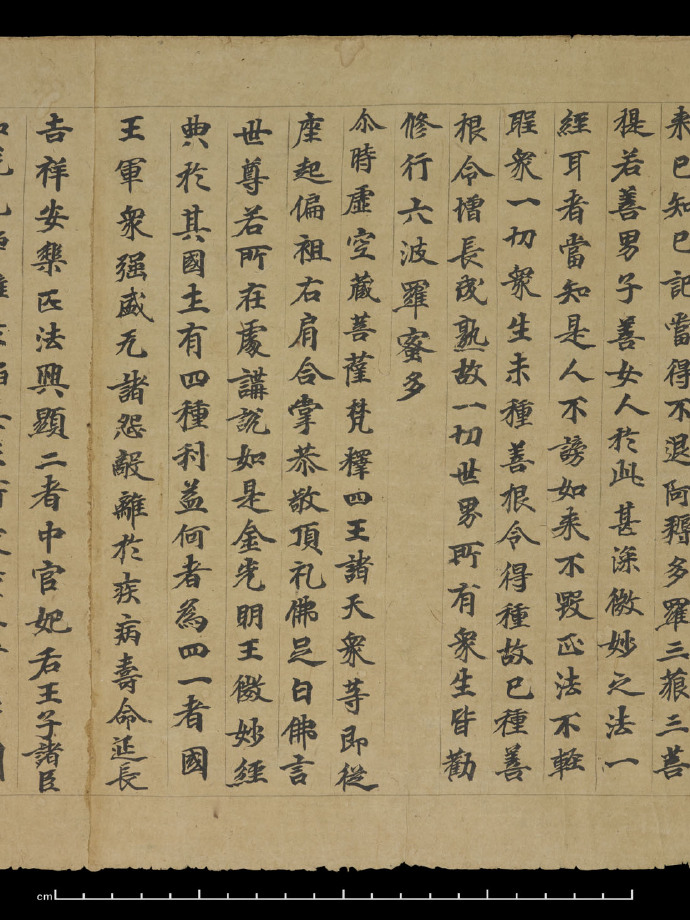 来已知已記當得不退阿耨多羅三藐三菩
提若善男子善女人於此甚深微妙之法一
經耳者當知是人不謗如来不毀正法不輕
聖衆一切衆生未種善根令得種故已種善
根令增長成熟故一切世界所有衆生皆勸
修行六波羅蜜多
尒時虛空藏菩薩梵釋四王諸天衆等即從
座起偏袒右肩合掌恭敬頂礼佛足白佛言
世尊若所在處講説如是金光明王微妙經
典於其國土有四種利益何者為四一者國
王軍衆强盛无諸怨敵離於疾病壽命延長
吉祥安樂正法興顯二者中宫妃后王子諸臣